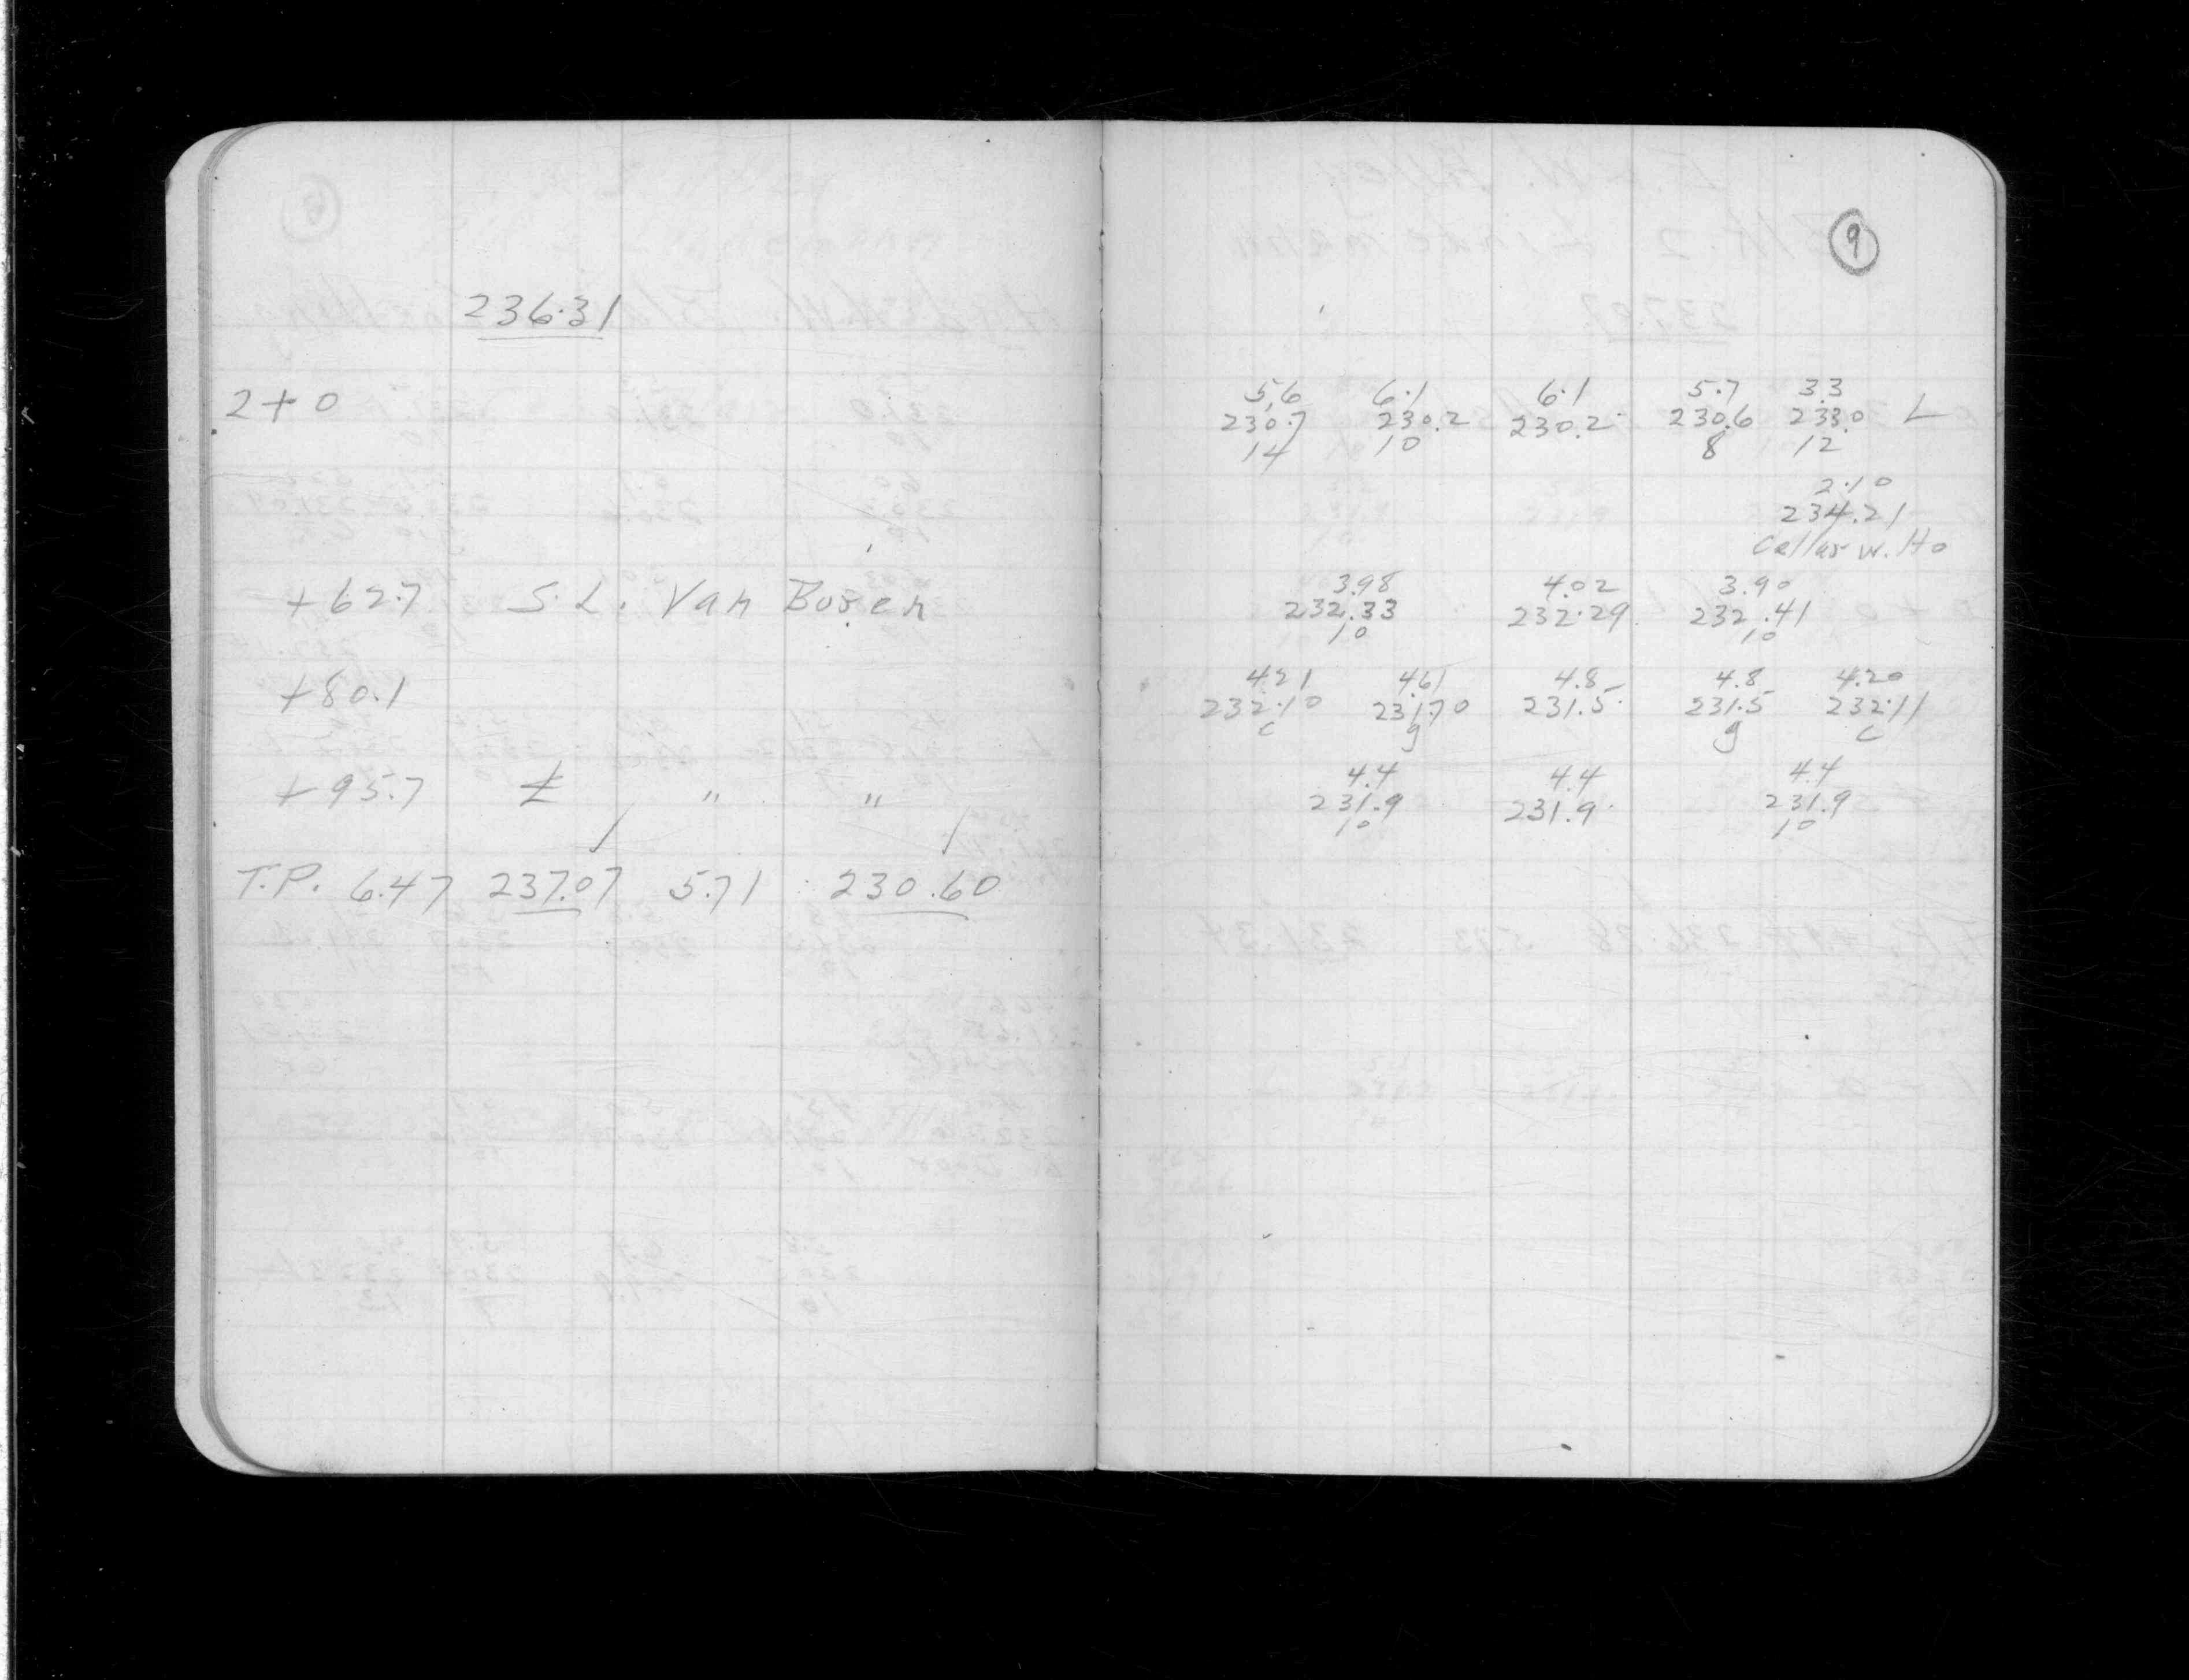 236.31
2+0
+62.7 S.L. Van Bosen
+80.1
+95.7 " "
T.P. 6.47 237.07 5.71 230.60
9
5.6 6.1 6.1 5.7 3.3
230.7 230.2 230.2 230.6 233.0 L
14 10 8 12
2.10
234.21
Cellar W. Ho
3.98 4.02 3.90
232.33 232.29 232.41
10 10
4.21 4.61 4.8 4.8 4.20
232.10 231.70 231.5 231.5 232.11
c g g c
4.4 4.4 4.4
231.9 231.9 231.9
10 10